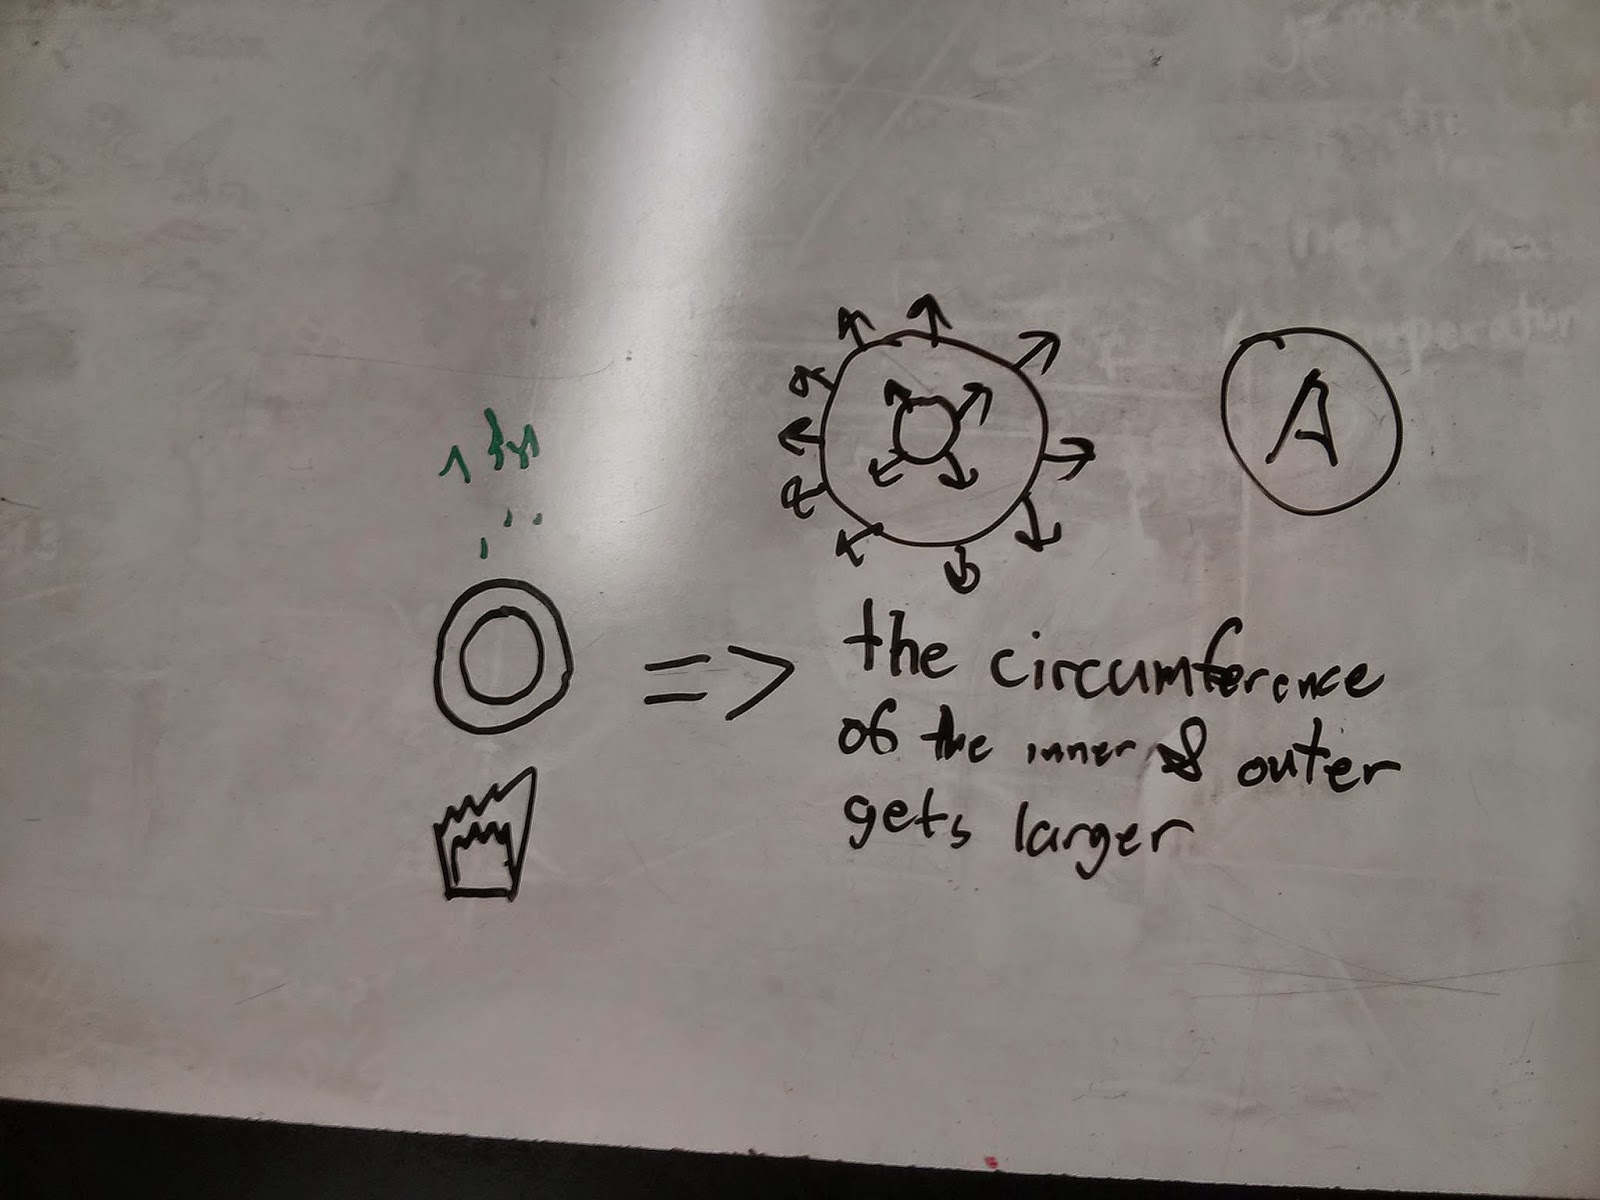 A
=>
the circumference
of the inner & outer
gets larger